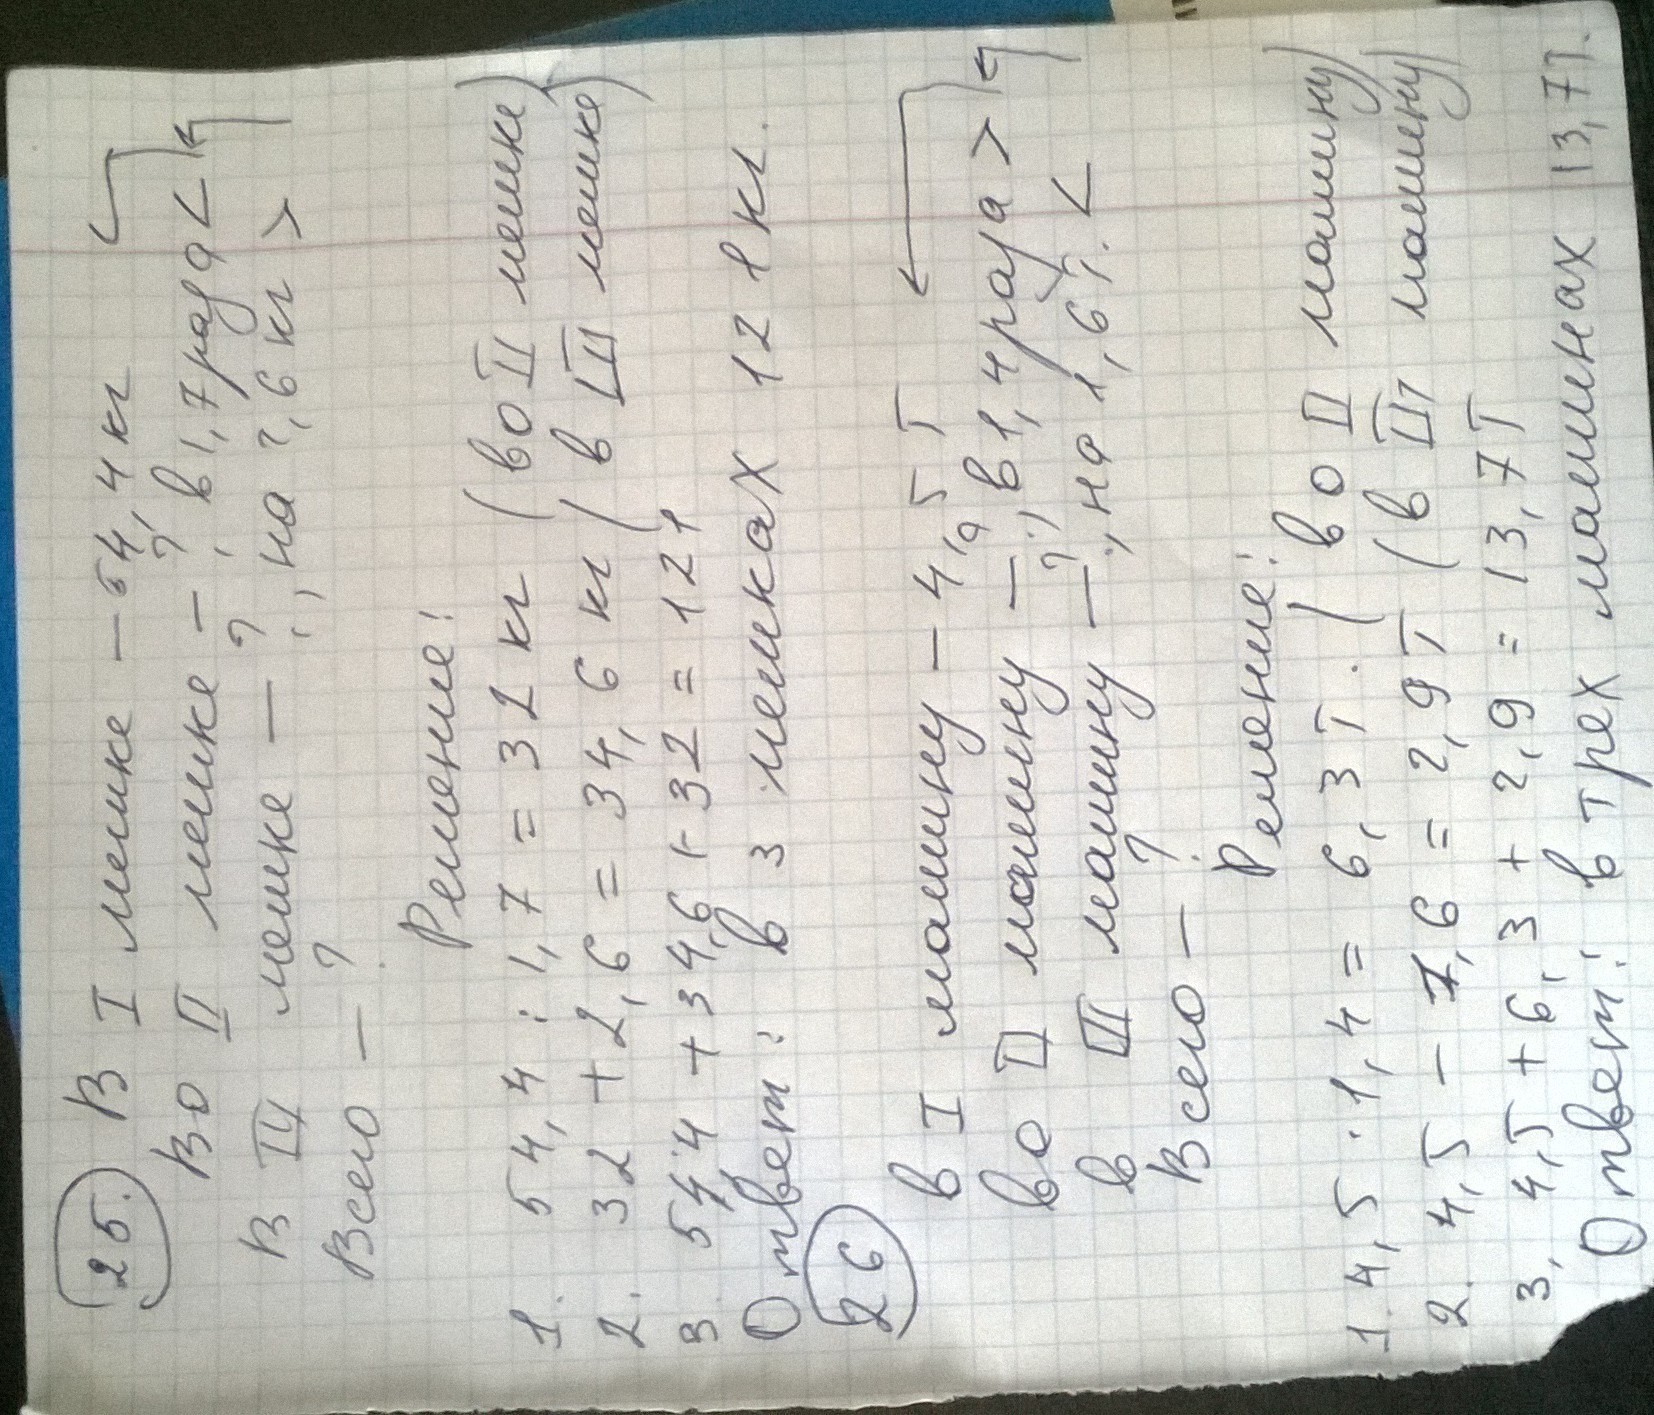 25. В I мешке – 54,4 кг
Во II мешке – ?, в 1,7 раза <
В III мешке – ?, на ?,6 кг >
Всего – ?
Решение:
1. 54,4 : 1,7 = 32 кг (во II мешке)
2. 32 + 2,6 = 34,6 кг (в III мешке)
3. 54,4 + 34,6 + 32 = 121
Ответ: в 3 мешках 121 кг.
26 В I машину – 4,5 т
Во II машину – ?, в 1,4 раза >
в III машину – ?, на 1,6 т. <
Всего – ?
Решение:
1. 4,5 · 1,4 = 6,3 т. (во II машину)
2. 4,5 – 1,6 = 2,9 т (в III машину)
3. 4,5 + 6,3 + 2,9 = 13,7 т
Ответ: в трех машинах 13,7 т.